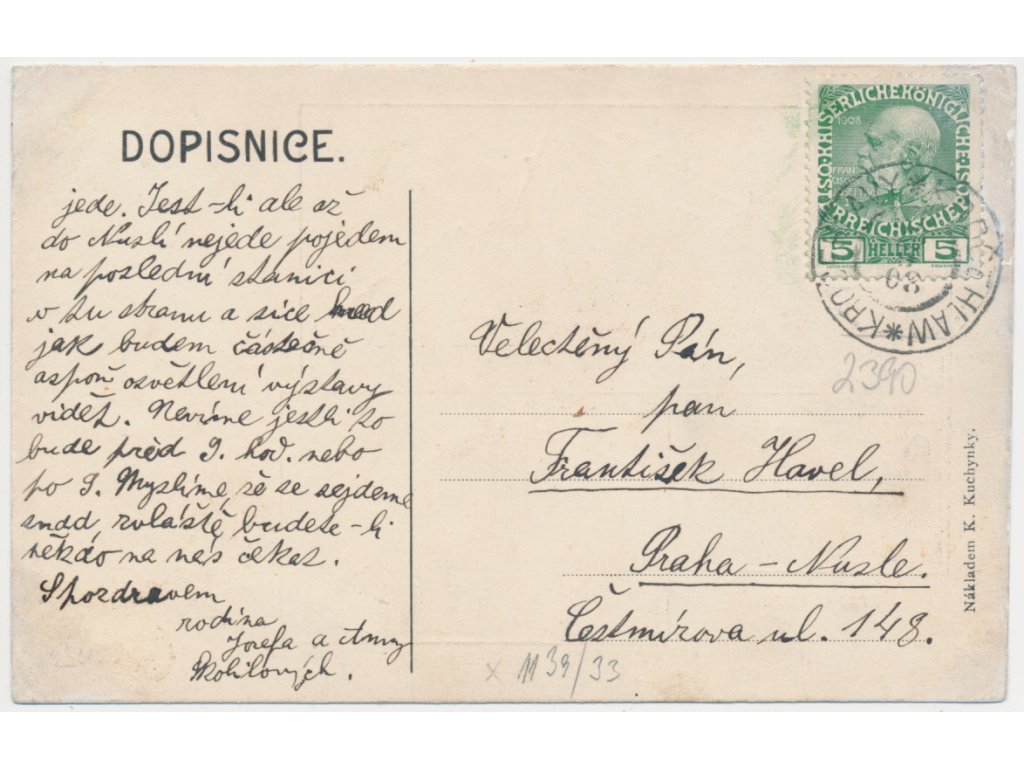 DOPISNICE.
jede. Jest-li ale až
do Nuslí nejede pojedem
na poslední stanici
v tu stranu a sice
jak budem částečně
aspoň osvětlení výstavy
vidět. Nevíme jestli to
bude před 9. hod. nebo
po 9. Myslíme, že se sejdeme
snad, zvláště budete-li
někdo na nás čekat.
S pozdravem
rodina
Josefa a Anny
KAISERLICHE KÖNIGLICHE
ÖSTERREICHISCHE POST
1908
FRANZ
5 HELLER 5
08
2390
Velectěný Pán,
pan
František Havel,
Praha - Nusle.
Čestmírova ul. 148.
Nákladem K. Kuchynky.
x 1139/33